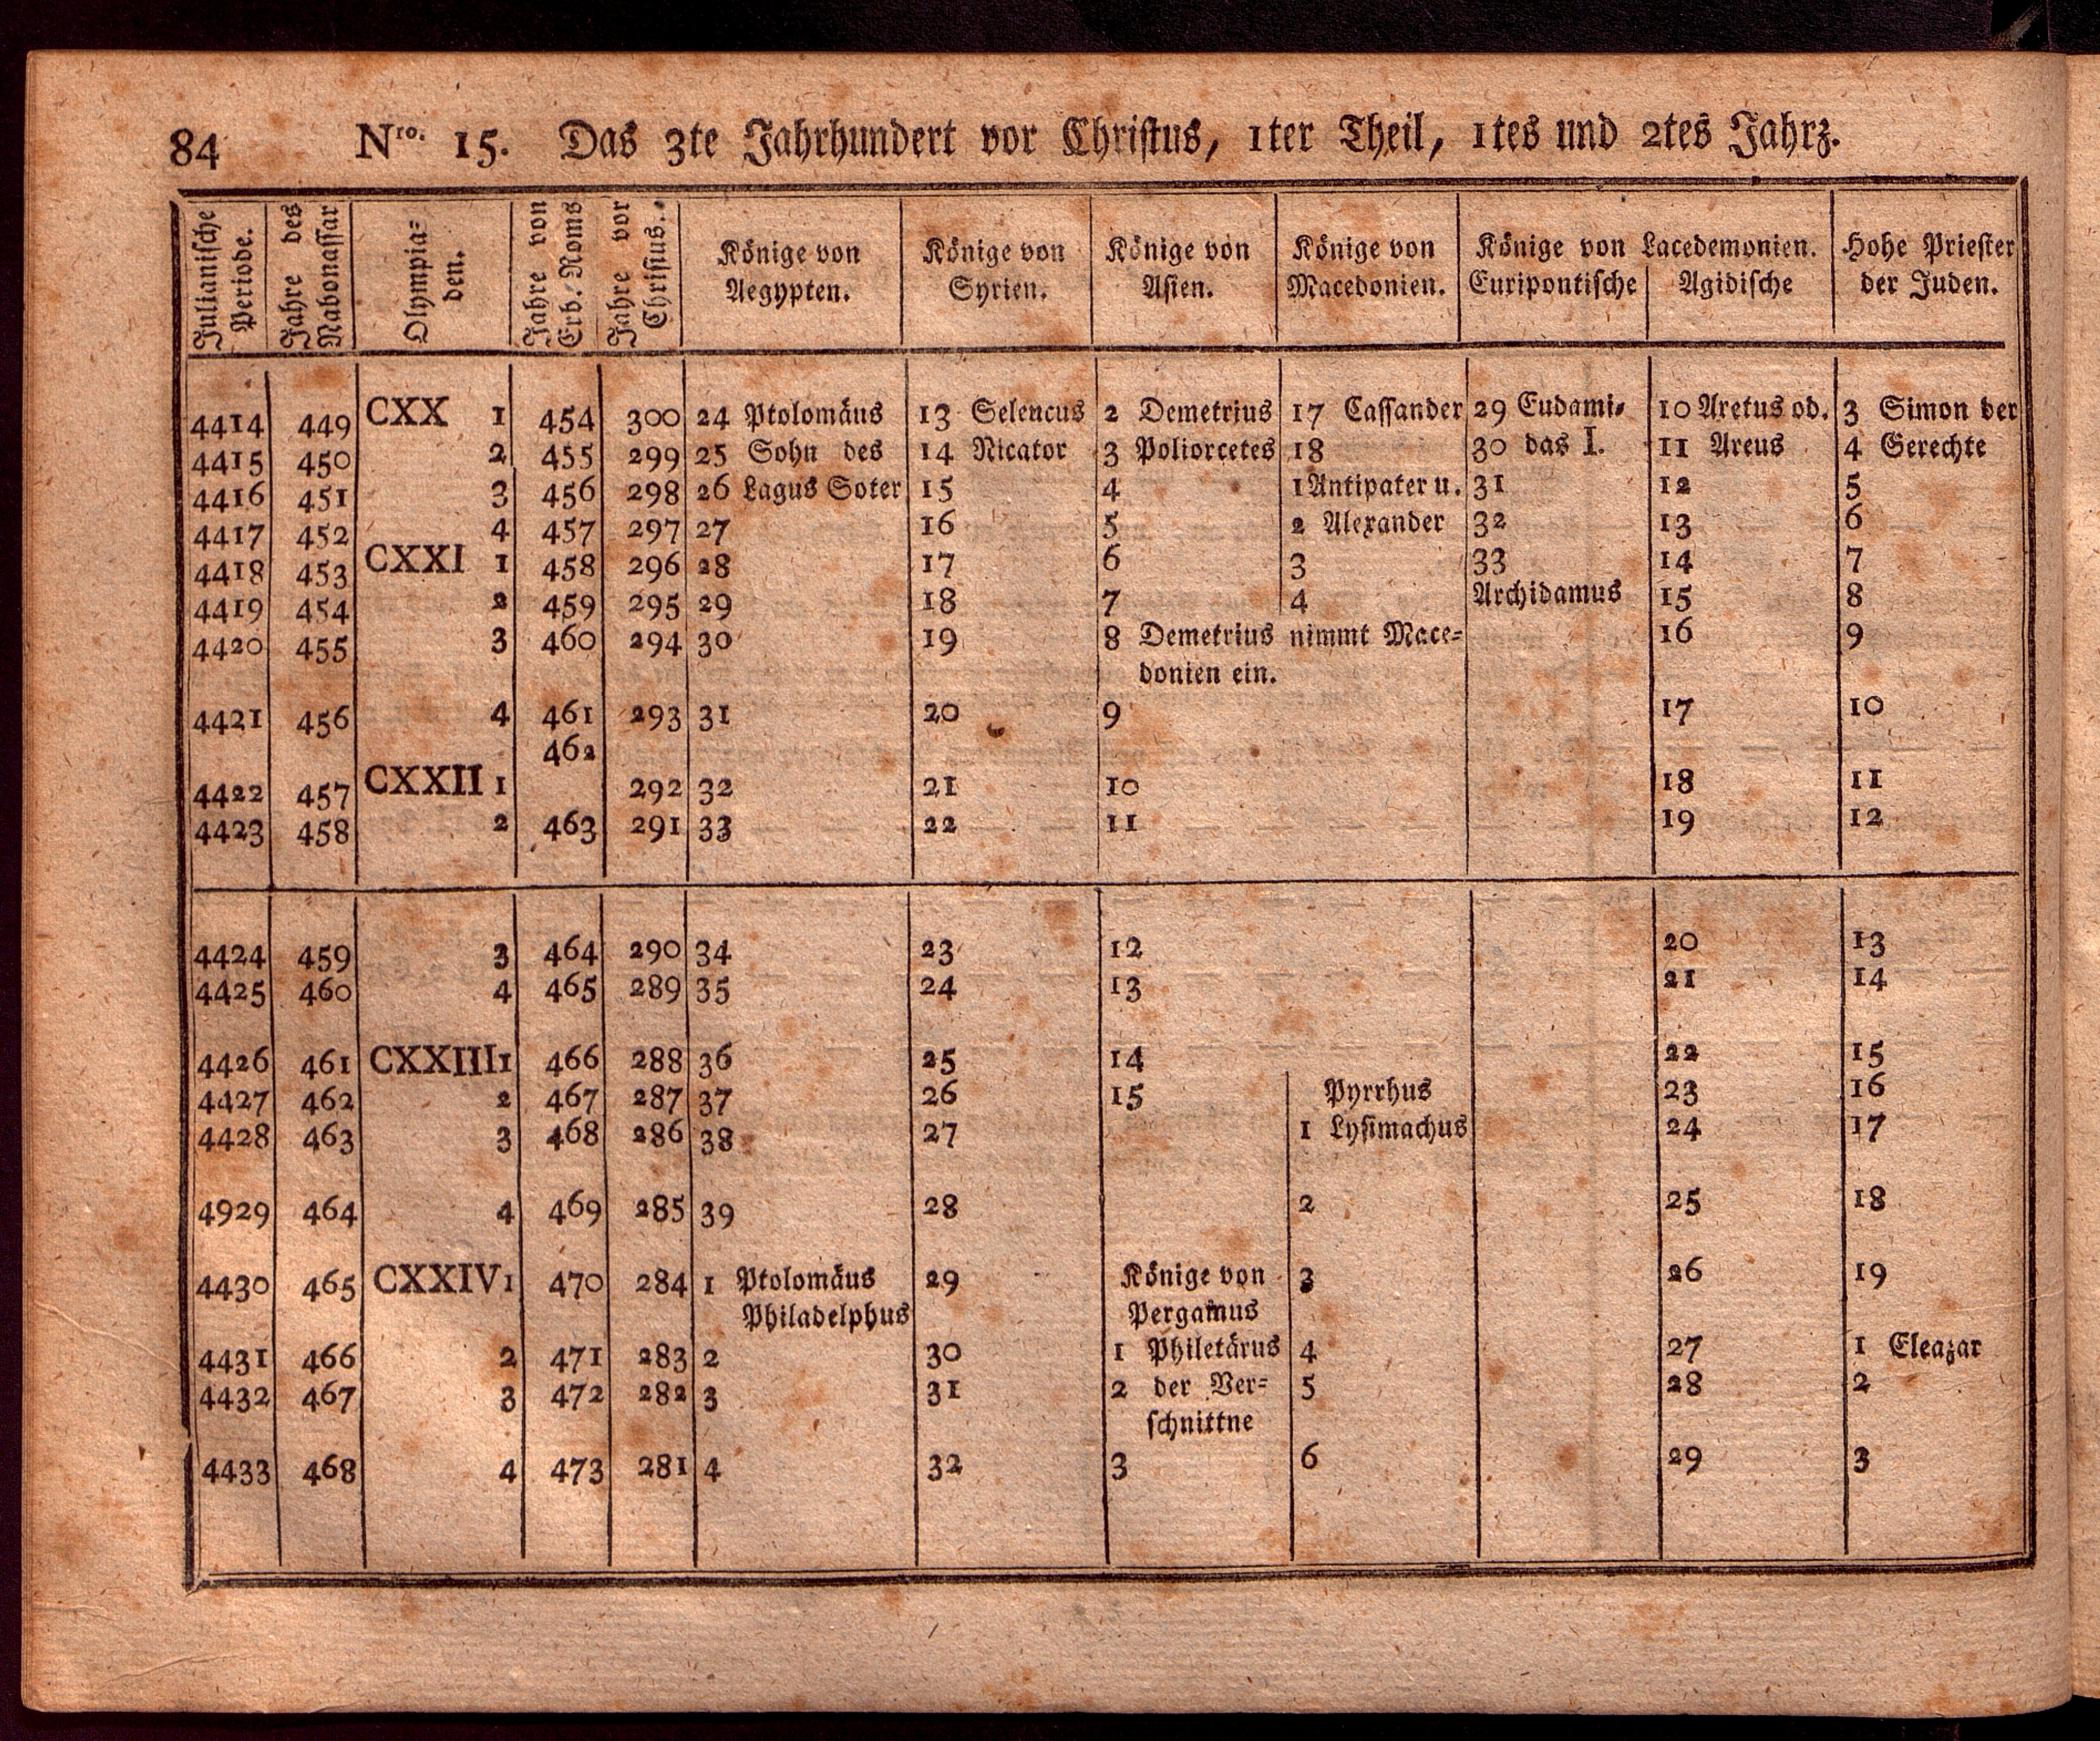 84 Nro. 15. Das 3te Jahrhundert vor Christus, 1ter Theil, 1tes und 2tes Jahrz.
Julianische Periode. Jahre des Nabonassar Olympia= den. Jahre von Erb. Roms Jahre vor Christus. Könige von Aegypten. Könige von Syrien. Könige von Asien. Könige von Macedonien. Könige von Lacedemonien. Euripontische Agidische Hohe Priester der Juden.
4414 449 CXX 1 454 300 24 Ptolomäus 13 Selencus 2 Demetrius 17 Cassander 29 Eudami= 10 Aretus od. 3 Simon der
4415 450 2 455 299 25 Sohn des 14 Nicator 3 Poliorcetes 18 30 das I. 11 Areus 4 Gerechte
4416 451 3 456 298 26 Lagus Soter 15 4 1 Antipater u. 31 12 5
4417 452 4 457 297 27 16 5 2 Alexander 32 13 6
4418 453 CXXI 1 458 296 28 17 6 3 33 14 7
4419 454 2 459 295 29 18 7 4 Archidamus 15 8
4420 455 3 460 294 30 19 8 Demetrius nimmt Mace= 16 9
donien ein.
4421 456 4 461 293 31 20 9 17 10
462
4422 457 CXXII 1 292 32 21 10 18 11
4423 458 2 463 291 33 22 11 19 12
4424 459 3 464 290 34 23 12 20 13
4425 460 4 465 289 35 24 13 21 14
4426 461 CXXIII 1 466 288 36 25 14 22 15
4427 462 2 467 287 37 26 15 Pyrrhus 23 16
4428 463 3 468 286 38 27 1 Lysimachus 24 17
4929 464 4 469 285 39 28 2 25 18
4430 465 CXXIV 1 470 284 1 Ptolomäus 29 Könige von 3 26 19
Philadelphus Pergamus
4431 466 2 471 283 2 30 1 Philetärus 4 27 1 Eleazar
4432 467 3 472 282 3 31 2 der Ver= 5 28 2
schnittne
4433 468 4 473 281 4 32 3 6 29 3